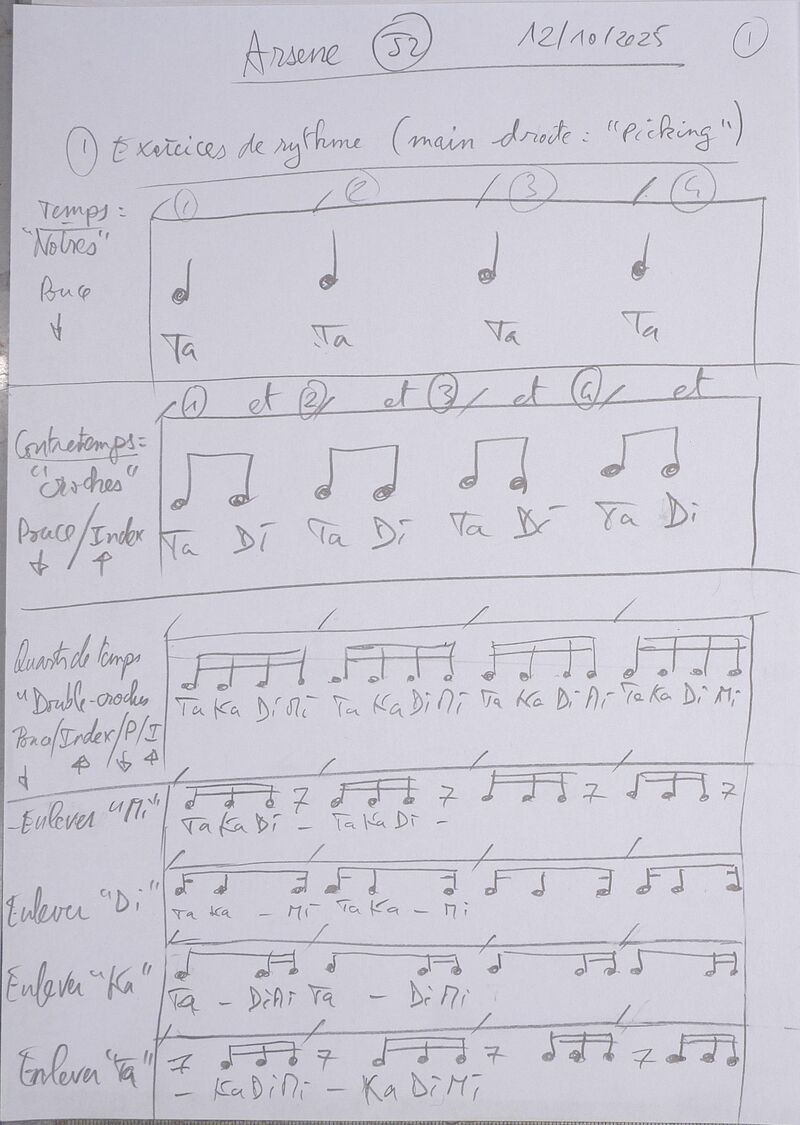 Arsene 52 12/10/2025 1
1 Exercices de rythme (main droite: "Picking")
Temps: / 1 / 2 / 3 / 4
"Notres"
Pouce
↓
Ta Ta Ta Ta
/ 1 et 2 / et 3 / et 4 / et
Contretemps=
"Croches"
Pouce/Index
↓ ↑
Ta Di Ta Di Ta Di Ta Di
Quarts de temps
"Double-croches
Pouce/Index/P/I
↓ ↑ ↓ ↑
Ta Ka Di Mi Ta Ka Di Mi Ta Ka Di Mi Ta Ka Di Mi
-Enlever "Mi"
Ta Ka Di - Ta Ka Di -
Enlever "Di"
Ta Ka - Mi Ta Ka - Mi
Enlever "Ka"
Ta - Di Mi Ta - Di Mi
Enlever "Ta"
- Ka Di Mi - Ka Di Mi